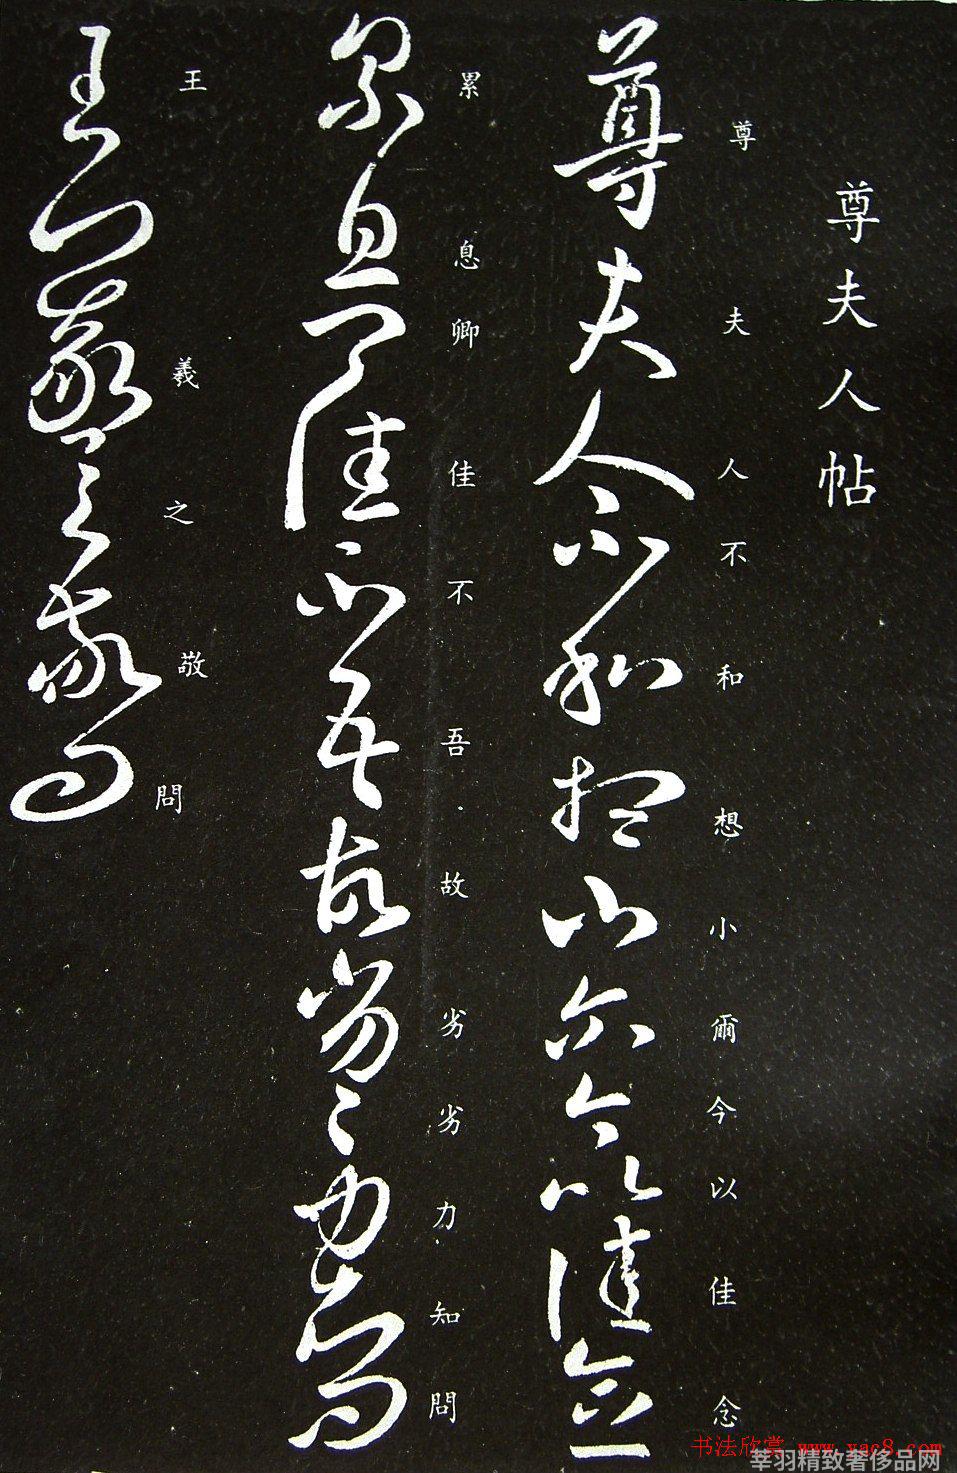 尊夫人帖
尊夫人不和想小爾今以佳念
累息卿佳不吾故劣劣力知問
王羲之敬問
书法欣赏 www.yac8.com
莘羽精致奢侈品网